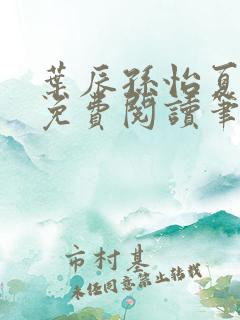 葉辰孫怡夏
免費閱讀筆
市村基
未经同意禁止转载